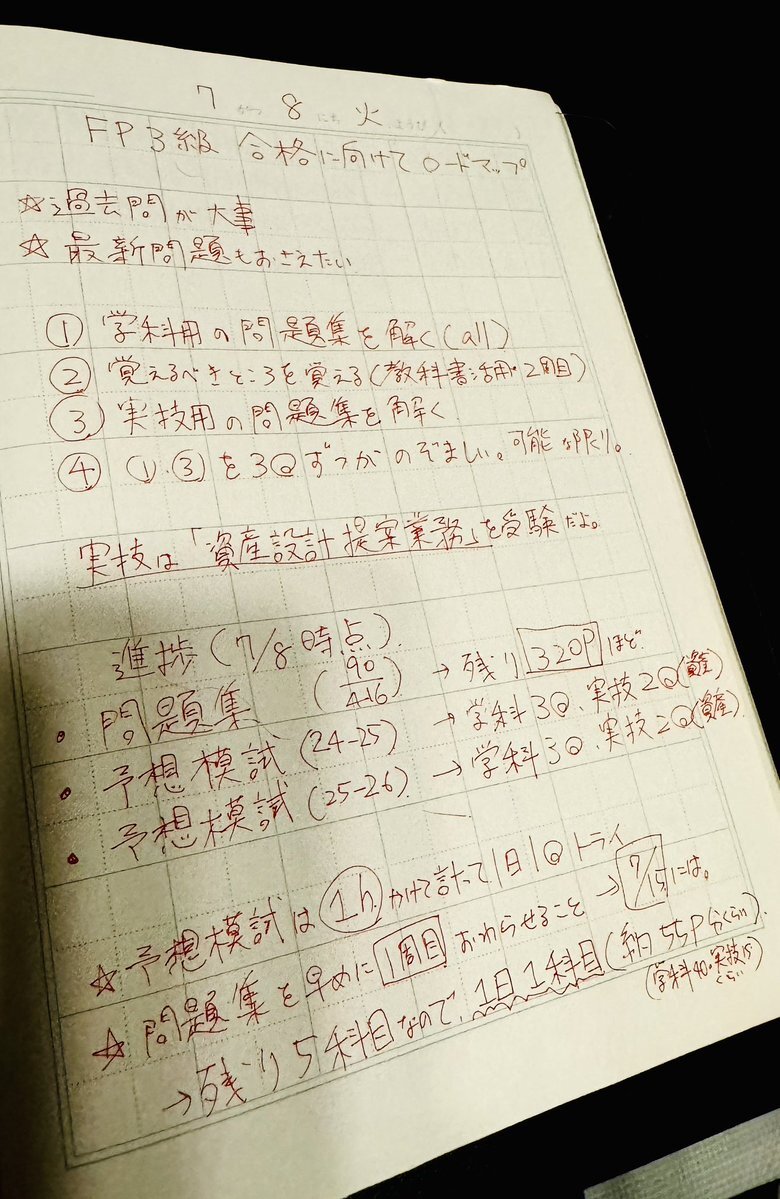 7がつ8にち火ようび( )
FP3級 合格に向けてロードマップ
☆過去問が大事
☆最新問題もおさえたい
① 学科用の問題集を解く(all)
② 覚えるべきところを覚える(教科書活用・2周目)
③ 実技用の問題集を解く
④ ①.③を3回ずつがのぞましい。可能な限り。
実技は「資産設計提案業務」を受験だよ。
進捗(7/8時点)
・問題集 (90/416) →残り320Pほど
・予想模試(24-25) →学科3回、実技2回(資産)
・予想模試(25-26) →学科3回、実技2回(資産)
☆予想模試は1h.かけて計って1日1回トライ
☆問題集を早めに1周目おわらせること→7/15には。
→残り5科目なので、1日1科目(約55P分くらい)
(学科40・実技15くらい)